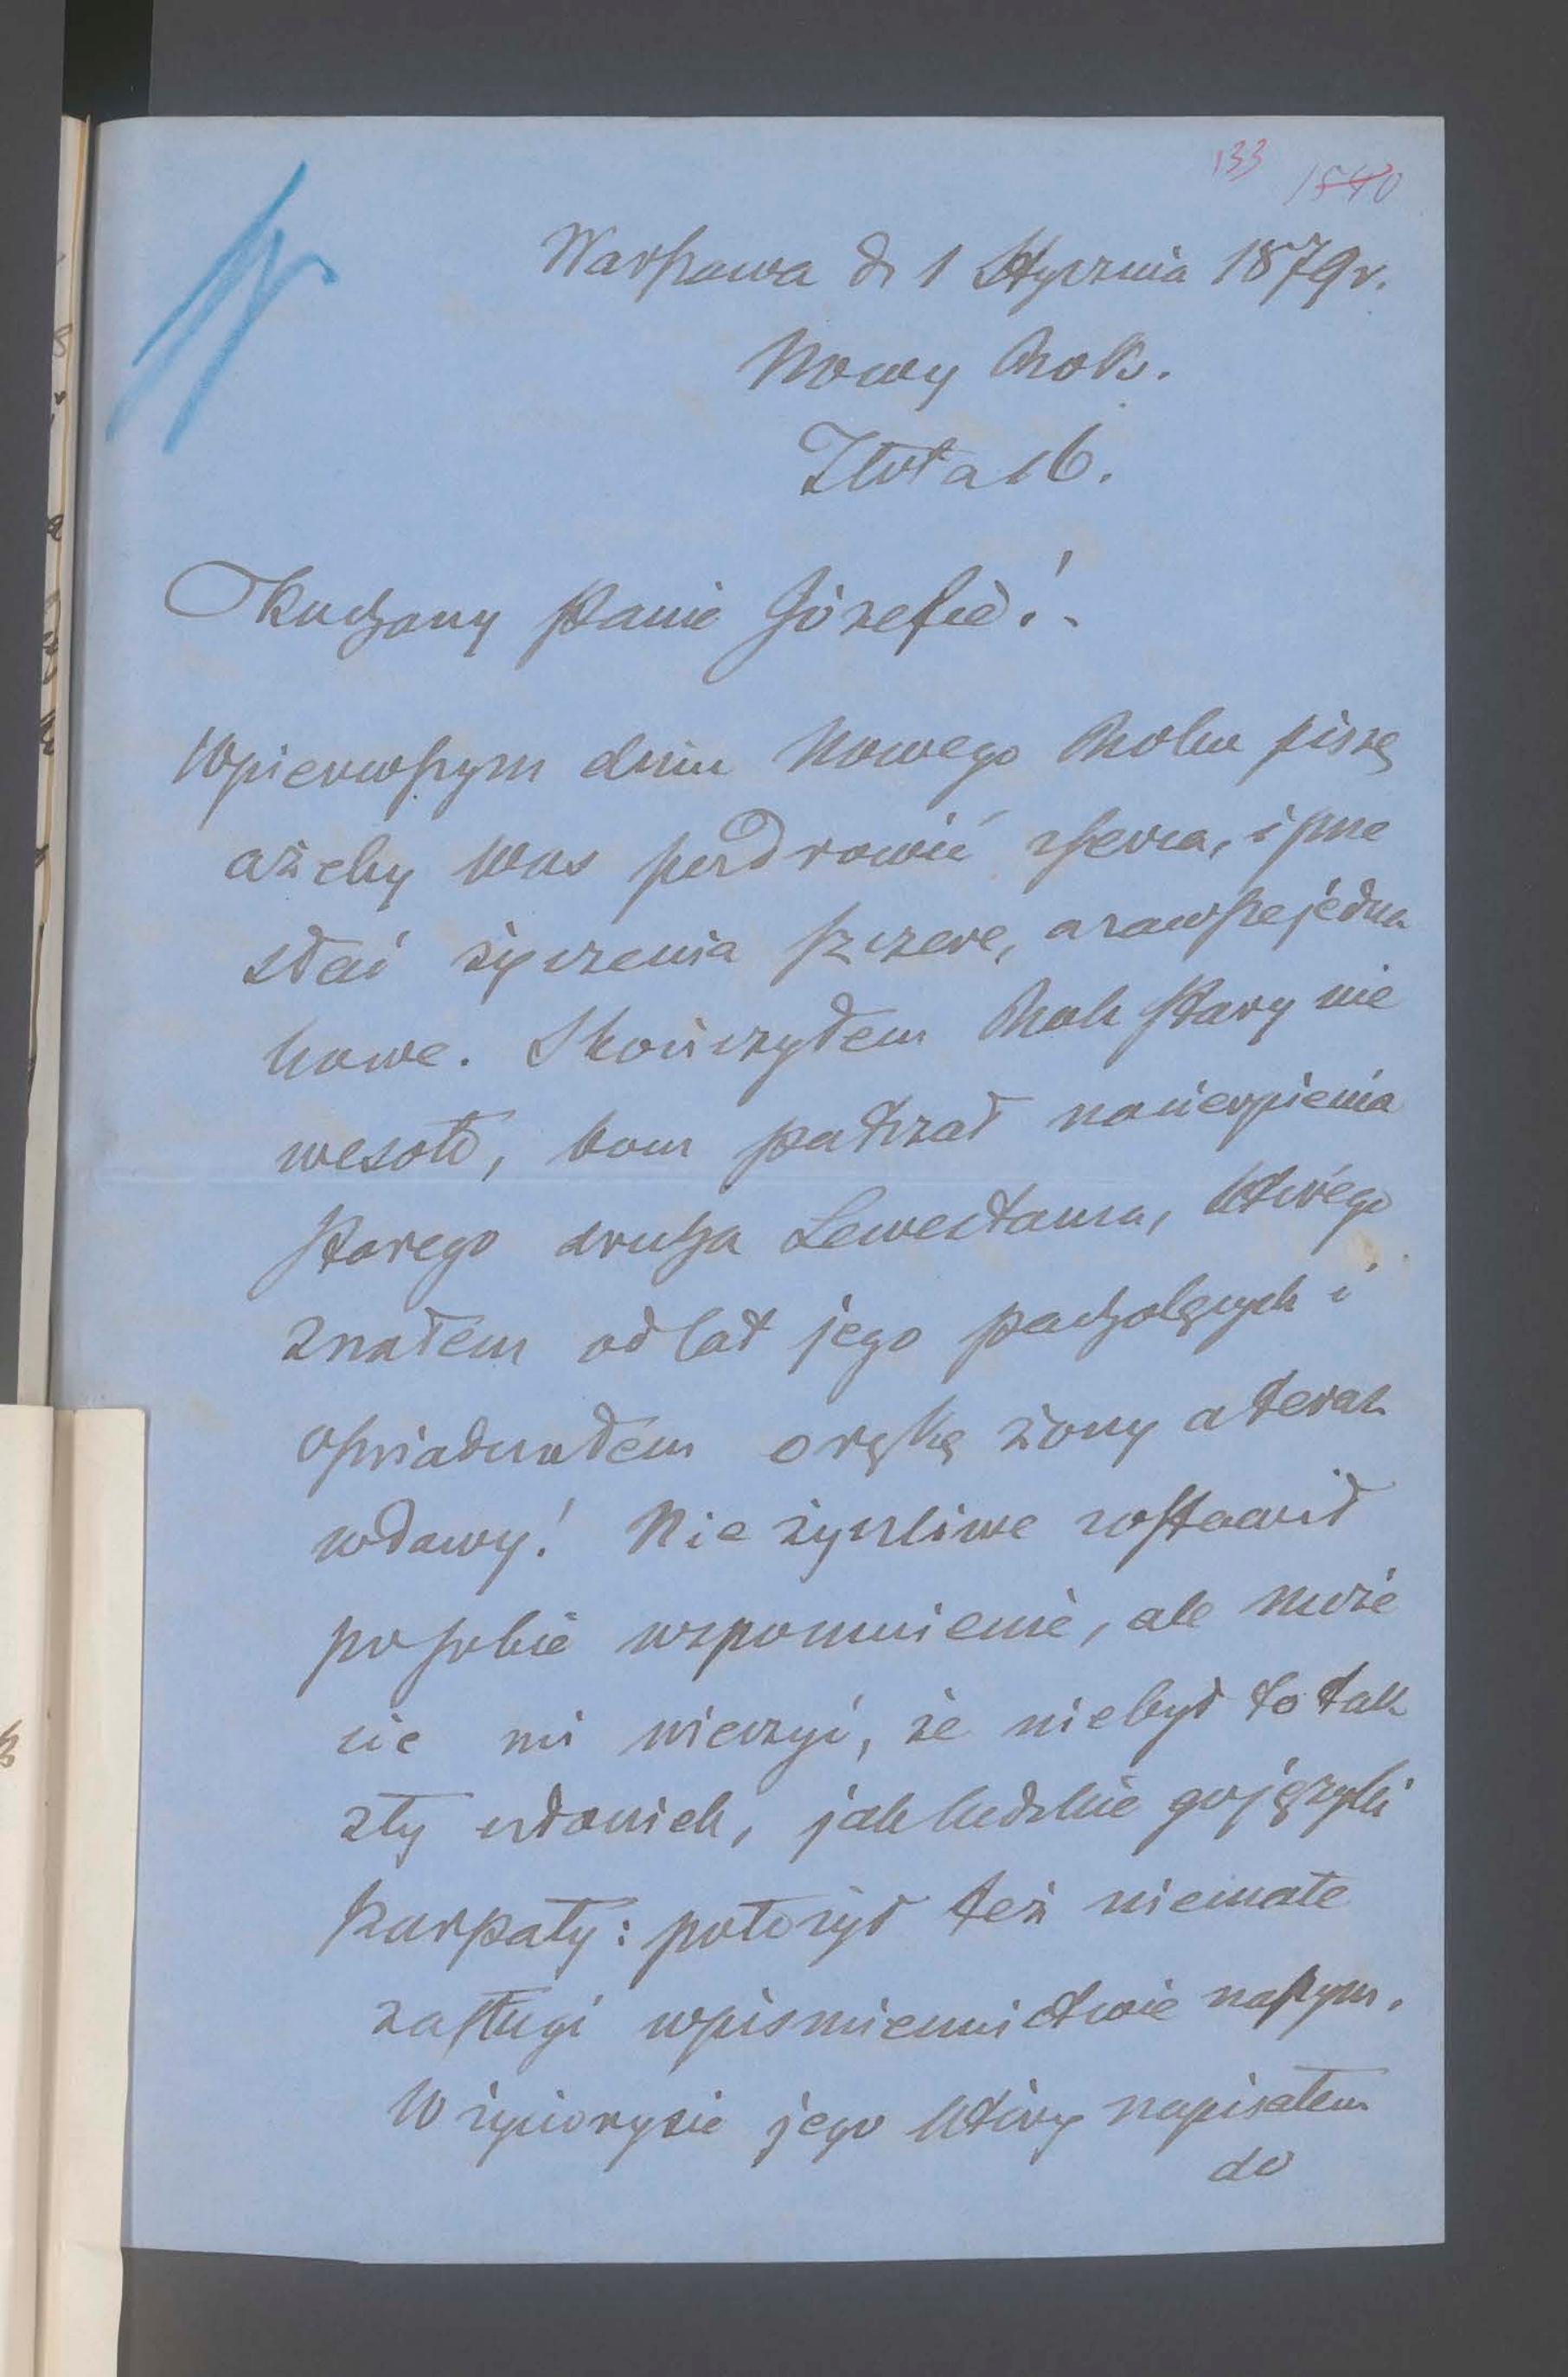 133 1540
Warszawa d. 1 Stycznia 1879 r.
Nowy Rok.
Złota 16.
Kochany Panie Józefie!
W pierwszym dniu Nowego Roku piszę
ażeby Was pozdrowić z serca, i prze
słać życzenia szczere, a zawsze jedna
kowe. Skończyłem Rok stary nie
wesoło, bom patrzał na cierpienia
starego druha Lewestama, którego
znałem od lat jego pacholęcych i
oświadczałem o rękę żony a teraz
wdowy! Nie życzliwe zostawił
po sobie wspomnienie, ale może
cie mi wierzyć, że nie był to tak
zły człowiek, jak ludzkie go języki
szarpały: położył też niemałe
zasługi w piśmiennictwie naszym.
W życiorysie jego który napisałem
do